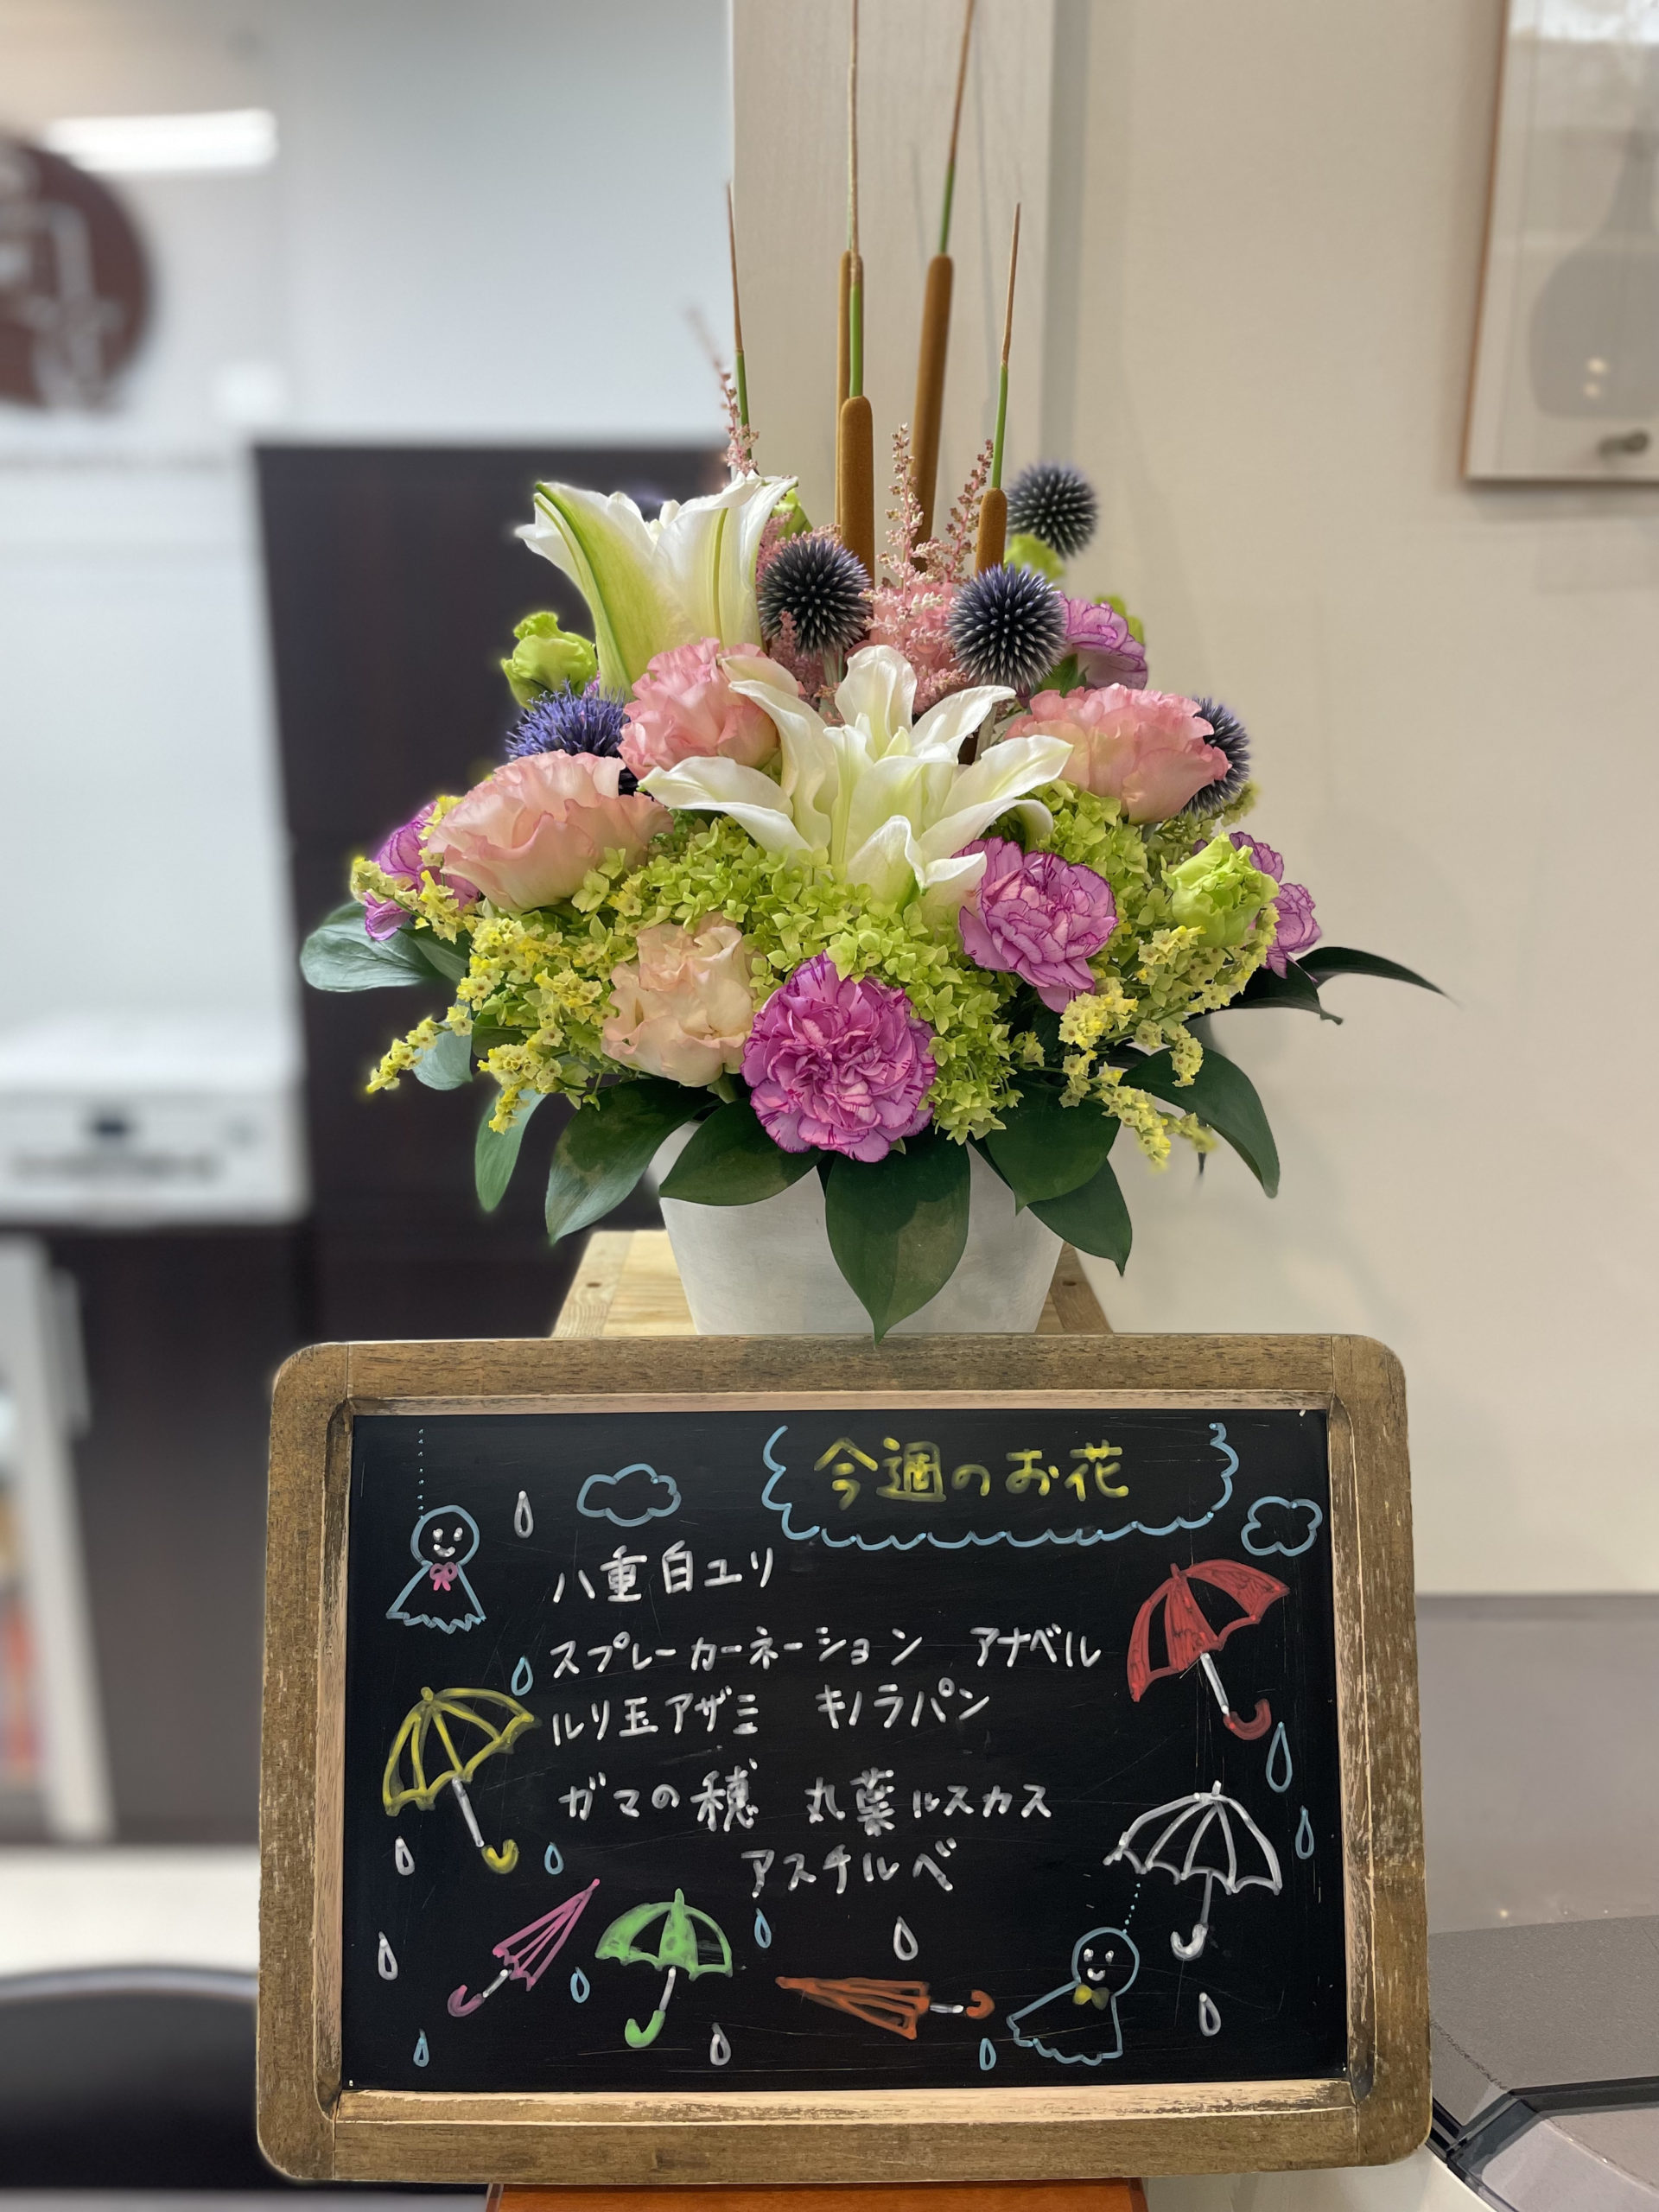 今週のお花
八重白ユリ
スプレーカーネーション アナベル
ルリ玉アザミ キノラパン
ガマの穂 丸葉ルスカス
アスチルベ